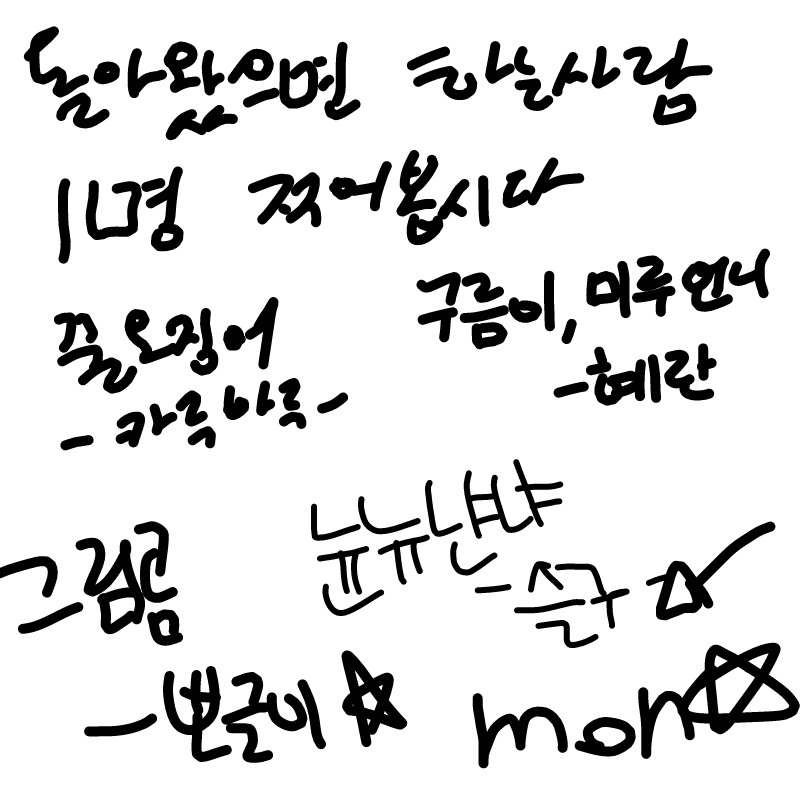 돌아왔으면 하는사람
11명 적어봅시다
쭐오징어
-카륵바륵-
구름이, 미루언니
-혜란
뉸뉴냔냐
-슌구
그림곰
-뽀글이☆
mon☆